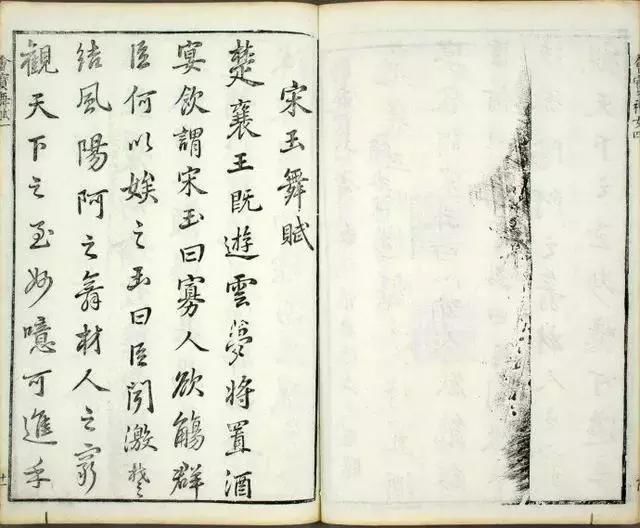 宋玉舞賦
楚襄王既遊雲夢將置酒
宴飲謂宋玉曰寡人欲觴群
臣何以娛之玉曰臣聞激楚
結風陽阿之舞材人之窮
觀天下之至妙噫可進乎